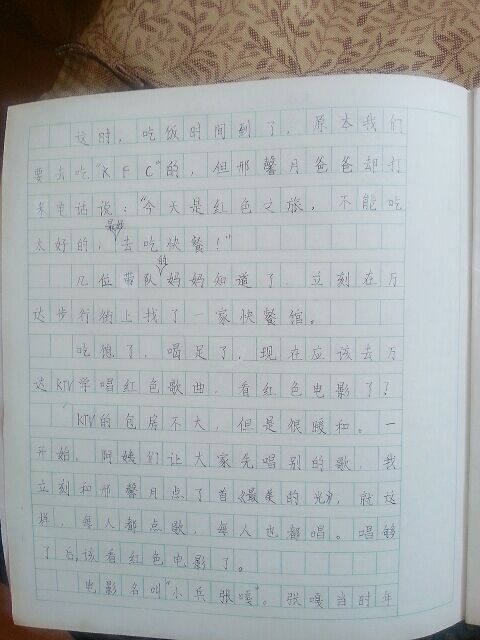 这时，吃饭时间到了，原本我们
要去吃“KFC”的，但邢馨月爸爸却打
来电话说：“今天是红色之旅，不能吃
太好的，最好去吃快餐！”
几位带队的妈妈知道了，立刻在万
达步行街上找了一家快餐馆。
吃饱了，喝足了，现在应该去万
达KTV学唱红色歌曲，看红色电影了！
KTV的包房不大，但是很暖和。一
开始，阿姨们让大家先唱别的歌，我
立刻和邢馨月点了首《最美的光》，就这
样，每人都点歌，每人也都唱。唱够
了后，该看红色电影了。
电影名叫“小兵张嘎”。张嘎当时年